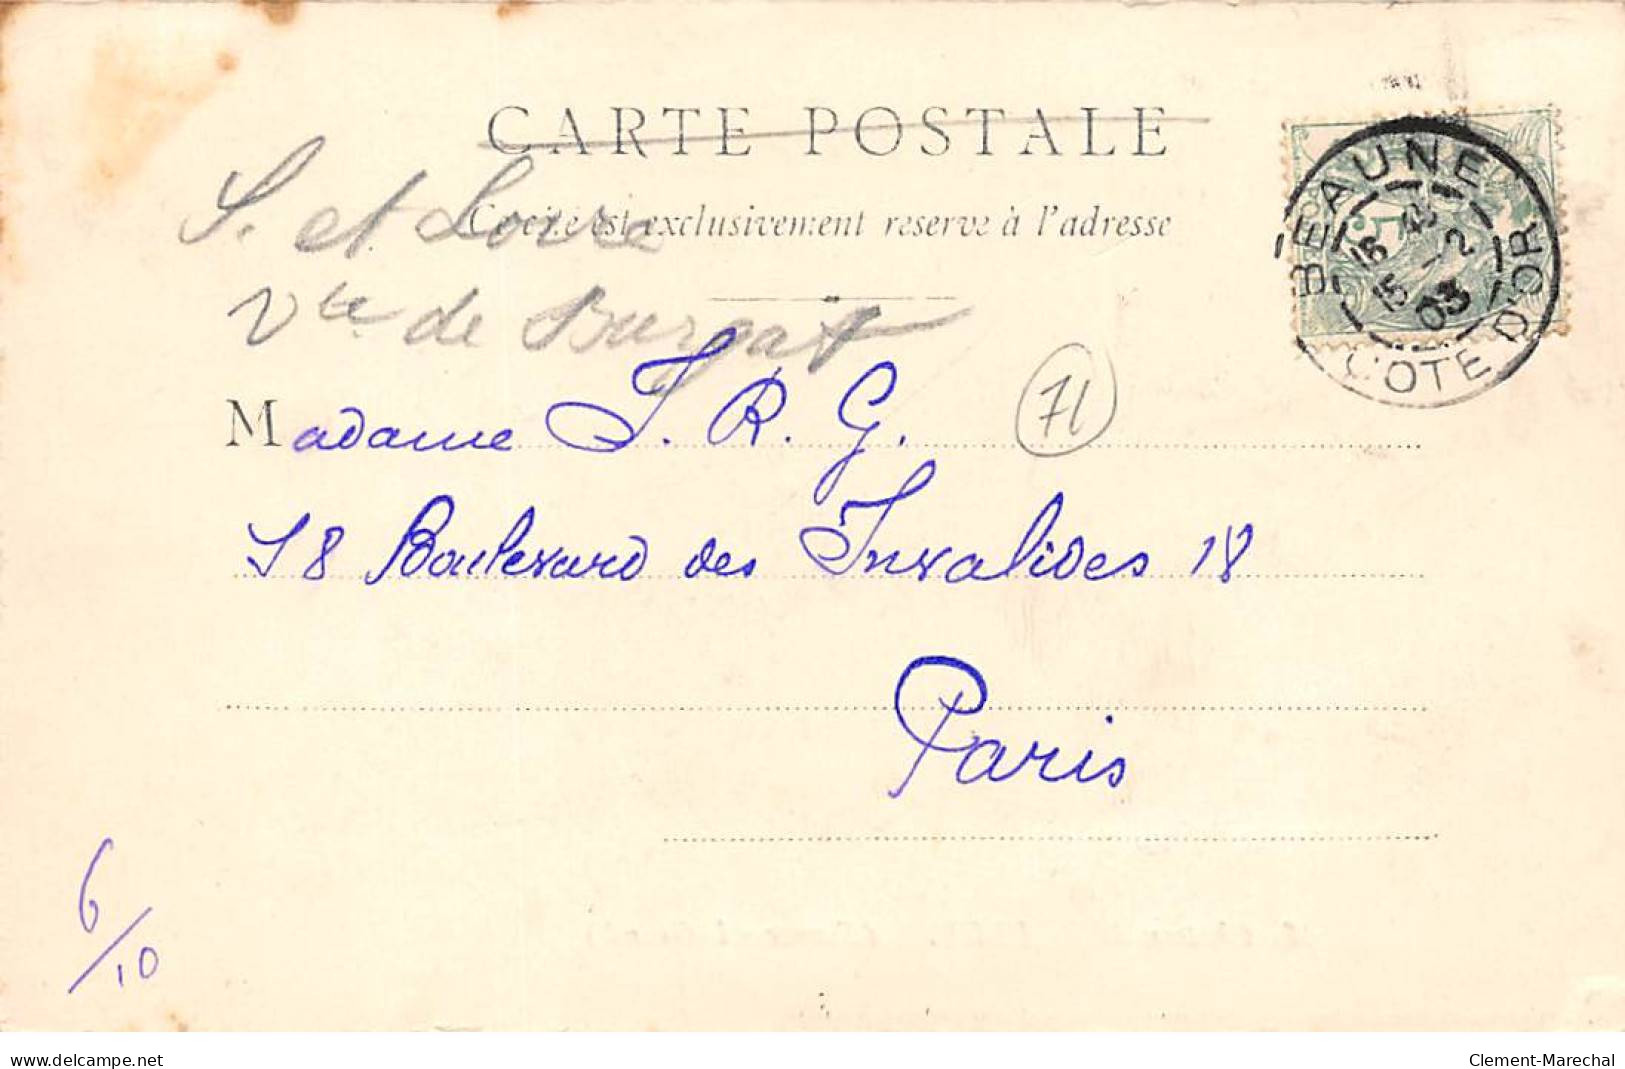 CARTE POSTALE
S. et Loire
Ce côté est exclusivement réservé à l'adresse
Vte de
BEAUNE
5 -2
03
COTE D'OR
Madame J. R. G.
71
18 Boulevard des Invalides 18
Paris
6/10
www.delcampe.net
Clement-Marechal